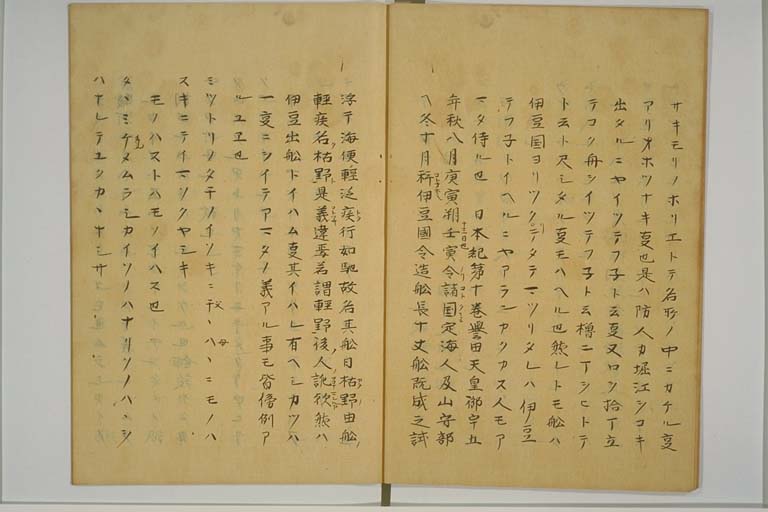 サキモリノホリエトテ名所ノ中ニカケル夏
アリオホツナキ夏也是ハ防人カ堀江シコキ
出タルニヤイツテフ子トハ云夏又ロシ拾丁立
テコク舟シイツテフ子ト云櫓二丁シヒトテ
ト云ト尺シタル夏モハヘル也然レトモ船ハ
伊豆国ヨリツクリテタテマツリタレハ伊豆
テフ子トイヘルニヤアランカクカス人モア
マタ侍ル也 日本紀第十巻誉田天皇御宇五
年秋八月庚寅朔壬寅令諸国定海人及山守部
冬十月科伊豆國令造船長十丈船既成之試
浮于海便輕泛疾行如馳故名其船曰枯野由船
輕疾名枯野是義違焉若謂輕野後人訛欤然ハ
伊豆出船トイハム夏其イハレ有ヘシカツハ
一夏ニシイテアマタノ義アル事モ皆傍例ア
ルユヱ也
ミツトリノタチノイソキニ父母ハヽニモノハ
スキニテイマシクヤシキ
モノハストハモノイハス也
タヽミケメムラシカイソノハナリソノハヽシ
ハナレテユクカヽナシサ